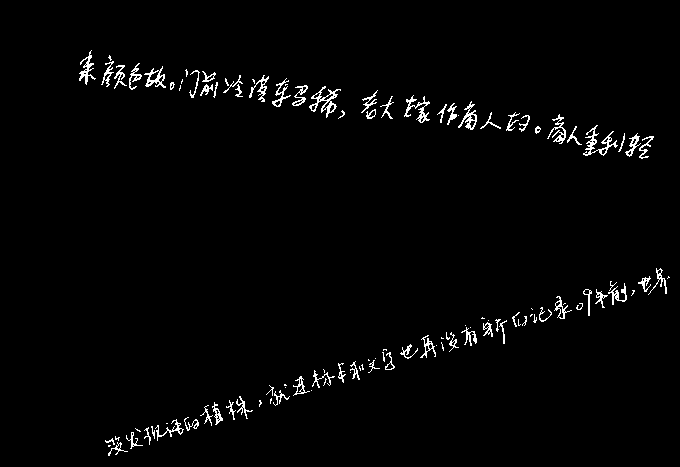 来颜色故。门前冷漠车马稀，老大嫁作商人妇。商人重利轻
没发现活的植株，就连标本和文字也再没有新的记录。9年前，世界